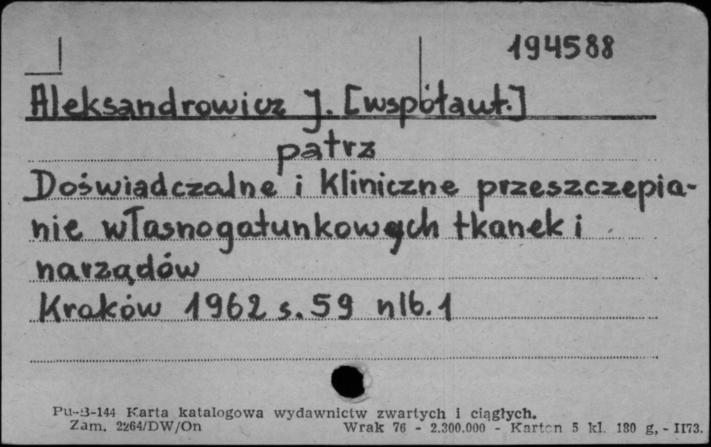 194588
Aleksandrowicz J. [współaut.]
patrz
Doświadczalne i kliniczne przeszczepia-
nie własnogatunkowych tkanek i
narządów
Kraków 1962 s. 59 nlb. 1
Pu-B-144 Karta katalogowa wydawnictw zwartych i ciągłych.
Zam. 2264/DW/On Wrak 76 - 2.300.000 - Karton 5 kl. 180 g, - II73.